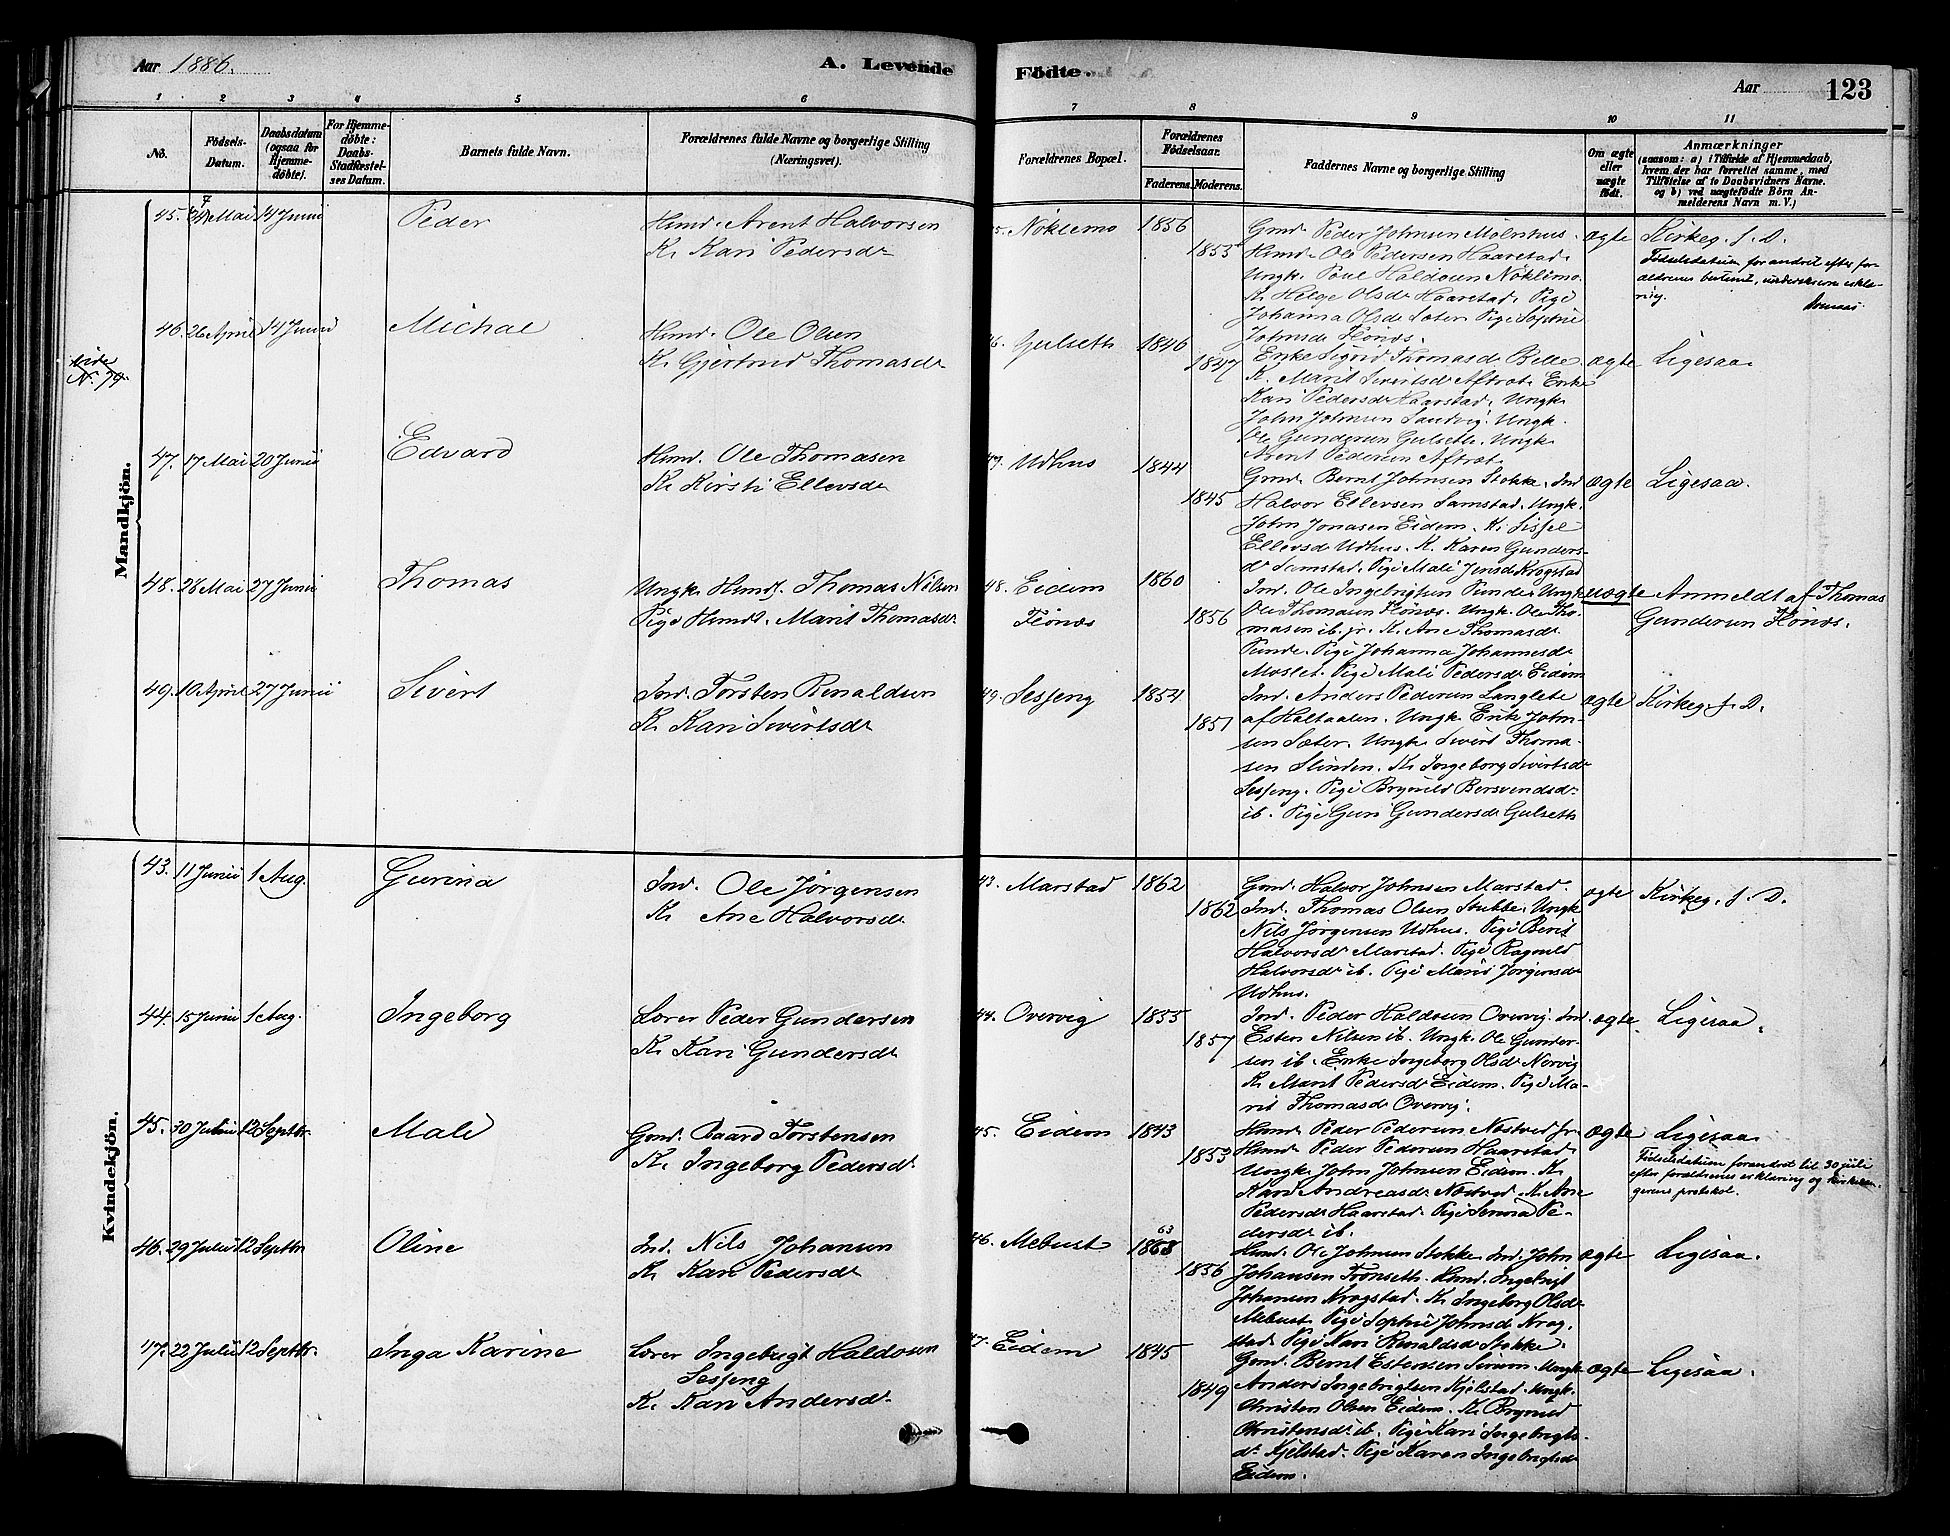 Aar 1886.
A. Levende
Födte.
Aar
123
1 2 3 4 5 6 7 8 9 10 11
No.
Födsels-
Datum.
Daabsdatum
(ogsaa for
Hjemme-
döbte).
For Hjemme-
döbte:
Daabs-
Stadfæstel-
ses Datum.
Barnets fulde Navn.
Forældrenes fulde Navne og borgerlige Stilling
(Næringsvei).
Forældrenes Bopæl.
Forældrenes
Födselsaar.
Faderens. Moderens.
Faddernes Navne og borgerlige Stilling
Om ægte
eller
uægte
födt.
Anmærkninger
(saasom: a) i Tilfælde af Hjemmedaab,
hvem der har forrettet samme, med
Tilföielse af to Daabsvidners Navne.
og b) ved uægtefödte Börn An-
melderens Navn m. V.)
Mandkjön.
45. Mai 14 Junii
Peder
Hmd. Arent Halvorsen
K. Kari Pedersdr
Nöklemo
1856
1855
Gmd. Peder Johnsen Mölnhus.
Hmd. Ole Pedersen Haarstad.
Ungk. Poul Haldosen Nöklemo.
K. Helge Olsdr Haarstad. Pige
Johanna Olsdr Sæter. Pige Sophie
Johnsdr Flönæs.
ægte
Kirkeg. f. D.
Födselsdatum forandret efter for-
ældrenes bestemt,
46. 26 April 14 Junii
vide
N. 79
Michal
Hmd. Ole Olsen
K. Gjertrud Thomasdr
46. Gulseth
1846
1847
Enke Sigrid Thomasdr Belle
K. Marit Sivertsdr Aftret. Enke
Kari Pedersdr Haarstad. Ungk.
John Johnsen Sandvig. Ungk.
Ole Gundersen Gulseth. Ungk.
Arent Pedersen Aftret.
ægte
Ligesaa.
47. 17 Mai 20 Junii
Edvard
Hmd. Ole Thomasen
K. Kirsti Ellevsdr
47. Udhus
1844
1845
Gmd. Bernt Johnsen Stokke. Ind
Halvor Ellevsen Samstad. Ungk.
John Jonasen Eidem. K. Sissel
Ellevsdr Udhus. K. Karen Gunders-
dr Samstad. Pige Mali Jensdr Kragstad
ægte
Ligesaa.
48. 26 Mai 27 Junii
Thomas
Ungk. Hmd. Thomas Nilsen
Pige Hmd. Marit Thomasdr
48. Eidem
Flönæs
1860
1856
Ind. Ole Ingebrigtsen Sunde. Ungk
Ole Thomasen Flönæs. Ungk. Ole Tho-
masen ib. jr. K. Ane Thomasdr
Sunde. Pige Johanna Johannesdr
Moslet. Pige Mali Pedersdr Eidem
uægte
Anmeldt af Thomas
Gundersen Flönæs.
49. 10 April 27 Junii
Sivert
Ind. Torsten Renaldsen
K. Kari Sivertsdr
49. Sesseng
1854
1851
Ind. Anders Pedersen Langlete
af Haltaalen. Ungk. Erik John-
sen Sæter. Ungk. Sivert Thoma-
sen Slinden. K. Ingeborg Sivertsdr
Sesseng. Pige Brynild Bersvendsdr
ib. Pige Guri Gundersdr Gulseth
ægte
Kirkeg. f. D.
Kvindekjön.
43. 11 Junii 1 Aug.
Gurina
Ind. Ole Jörgensen
K. Ane Halvorsdr
43. Marstad
1862
1862
Gmd. Halvor Johnsen Marstad.
Ind. Thomas Olsen Stubbe. Ungk
Nils Jörgensen Udhus. Pige Berit
Halvorsdr Marstad. Pige Ragnild
Halvorsdr ib. Pige Marit Jörgensdr
Udhus.
ægte
Kirkeg. f. D.
44. 15 Junii 1 Aug.
Ingeborg
Lærer Peder Gundersen
K. Kari Gundersdr
44. Overvig
1855
1857
Ind. Peder Haldosen Overvig. Ind
Esten Nilsen ib. Ungk. Ole Gunder-
sen ib. Enke Ingeborg Olsdr Nervig
K. Marit Pedersdr Eidem. Pige Ma-
rit Thomasdr Overvig.
ægte
Ligesaa.
45. 30 Julii 12 Septbr.
Male
Gmd. Baard Torstensen
K. Ingeborg Pedersdr
45. Eidem
1843
1853
Hmd. Peder Pedersen Nöstved jr.
Hmd. Peder Pedersen Haarstad.
Ungk. John Johnsen Eidem. K.
Kari Andreasdr Nöstved. K. Ane
Pedersdr Haarstad. Pige Serina Pe-
dersdr ib.
ægte
Ligesaa.
Födselsdatum forandret til 30 juli
efter forældrenes erklæring og kirkesan-
gerens protokol.
46. 29 Julii 12 Septbr
Oline
Ind. Nils Johansen
K. Kari Pedersdr
46. Mebust
63
1868
1856
Hmd. Ole Johnsen Stokke. Ind. John
Johansen Trönseth. Hmd. Ingebrigt
Johansen Kragstad. K. Ingeborg Olsdr
Mebust. Pige Sophie Johnsdr Krag-
stad. Pige Kari Renaldsdr Stokke.
ægte
Ligesaa.
47. 22 Julii 12 Septbr.
Inga Karine
Lærer Ingebrigt Haldosen
Sesseng
K. Kari Andersdr
47. Eidem
1845
1849
Gmd. Bernt Estensen Ungk.
Anders Ingebrigtsen Kjelstad. Ungk.
Christen Olsen Eidem. K. Brynild
Christensdr ib. Pige Kari Ingebrigts-
dr Kjelstad. Pige Karen Ingebrigtsdr
Eidem.
ægte
Ligesaa.